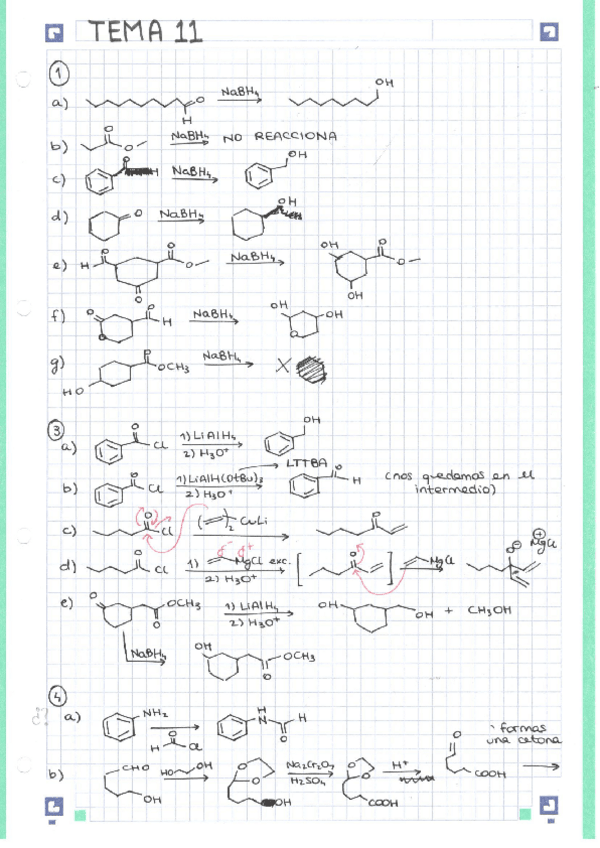 TEMA 11
1
a) O H NaBH4 OH
b) O O NaBH4 NO REACCIONA
c) O H NaBH4 OH
d) O NaBH4 OH
e) H O O O O NaBH4 OH O O OH
f) O O H O NaBH4 OH OH O
g) HO O OCH3 NaBH4 X
3
a) O Cl 1) LiAlH4 2) H3O+ OH
LTTBA
b) O Cl 1) LiAlH(OtBu)3 2) H3O+ O H (nos quedamos en el
intermedio)
c) O Cl ( )2 CuLi O
d) O Cl 1) MgCl exc. 2) H3O+ [ O ] MgCl O⊖ ⊕MgCl
e) O OCH3 O 1) LiAlH4 2) H3O+ OH OH + CH3OH
NaBH4 OH OCH3 O
4
a) NH2 H O Cl H N H O
formas
una cetona
b) CHO OH HO OH O O OH Na2Cr2O7 H2SO4 O O COOH H+ O COOH